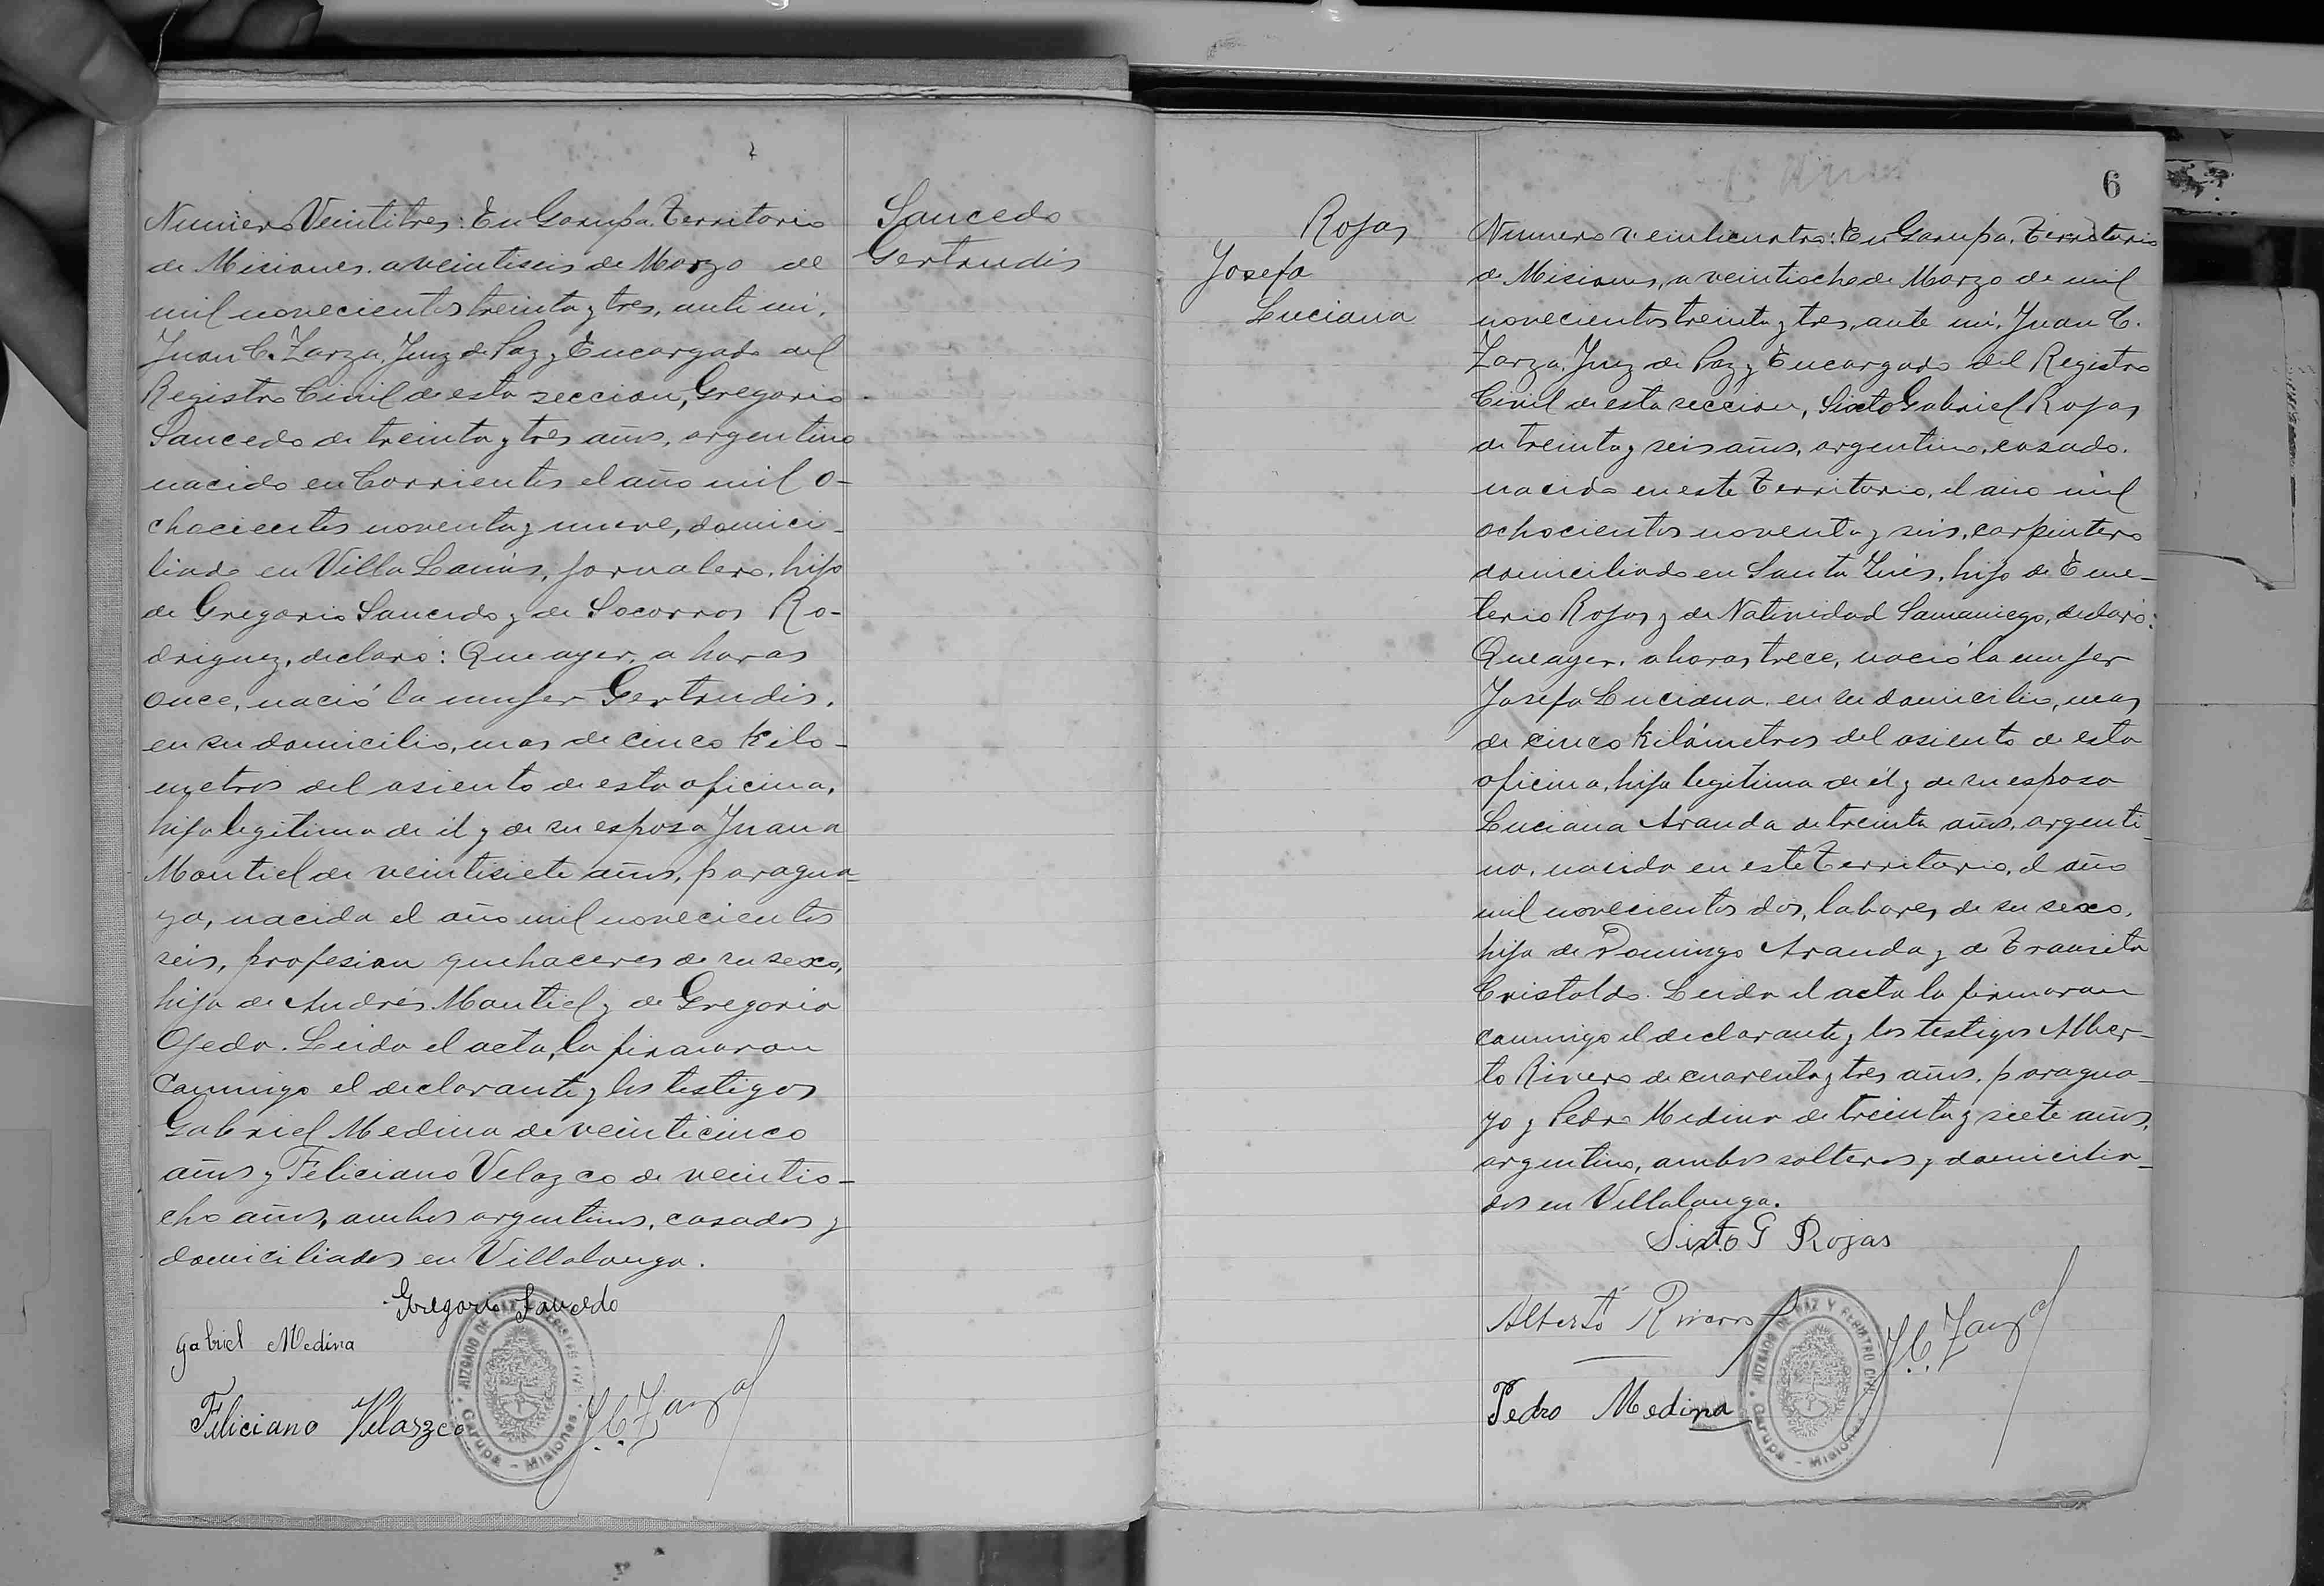 Numero Veintitres: En Garupa. Territorio
de Misiones. a veintiseis de Marzo de
mil novecientos treinta y tres, ante mi,
Juan C. Zarza, Juez de Paz y Encargado del
Registro Civil de esta seccion, Gregorio
Saucedo de treinta y tres años, argentino
nacido en Corrientes el año mil o-
chocientos noventa y nueve, domici-
liado en Villa Lanús, jornalero, hijo
de Gregorio Saucedo y de Socorros Ro-
driguez, declaró: Que ayer, a horas
once, nació la mujer Gertrudis,
en su domicilio, mas de cinco kilo-
metros del asiento de esta oficina,
hija legitima de él y de su esposa Juana
Montiel de veintisiete años, paragua-
ya, nacida el año mil novecientos
seis, profesion quehaceres de su sexo,
hija de Andrés Montiel y de Gregoria
Ojeda. Leida el acta, la firmaron
conmigo el declarante y los testigos
Gabriel Medina de veinticinco
años y Feliciano Velazco de veintio-
cho años, ambos argentinos, casados y
domiciliados en Villalonga.
Gregorio Saucedo
Gabriel Medina
Feliciano Velaszco
J.C. Zarza
JUZGADO DE PAZ Y REGISTRO CIVIL
Garupá - Misiones
Saucedo
Gertrudis
6
Rojas
Josefa
Luciana
Numero veinticuatro: En Garupa. Territorio
de Misiones, a veintiocho de Marzo de mil
novecientos treinta y tres, ante mi, Juan C.
Zarza, Juez de Paz y Encargado del Registro
Civil de esta seccion, Sixto Gabriel Rojas,
de treinta y seis años, argentino, casado,
nacido en este Territorio, el año mil
ochocientos noventa y seis, carpintero
domiciliado en Santa Inés, hijo de Eme-
terio Rojas y de Natividad Samaniego, declaró:
Que ayer, a horas trece, nació la mujer
Josefa Luciana, en su domicilio, mas
de cinco kilómetros del asiento de esta
oficina, hija legitima de él y de su esposa
Luciana Aranda de treinta años, argenti-
na, nacida en este Territorio, el año
mil novecientos dos, labores de su sexo,
hija de Domingo Aranda y de Transita
Cristaldo. Leida el acta la firmaron
conmigo el declarante y los testigos Alber-
to Rivero de cuarenta y tres años, paragua-
yo y Pedro Medina de treinta y siete años,
argentino, ambos solteros y domicilia-
dos en Villalonga.
Sixto G Rojas
Alberto Rivero
Pedro Medina
J.C. Zarza
JUZGADO DE PAZ Y REGISTRO CIVIL
Garupá - Misiones